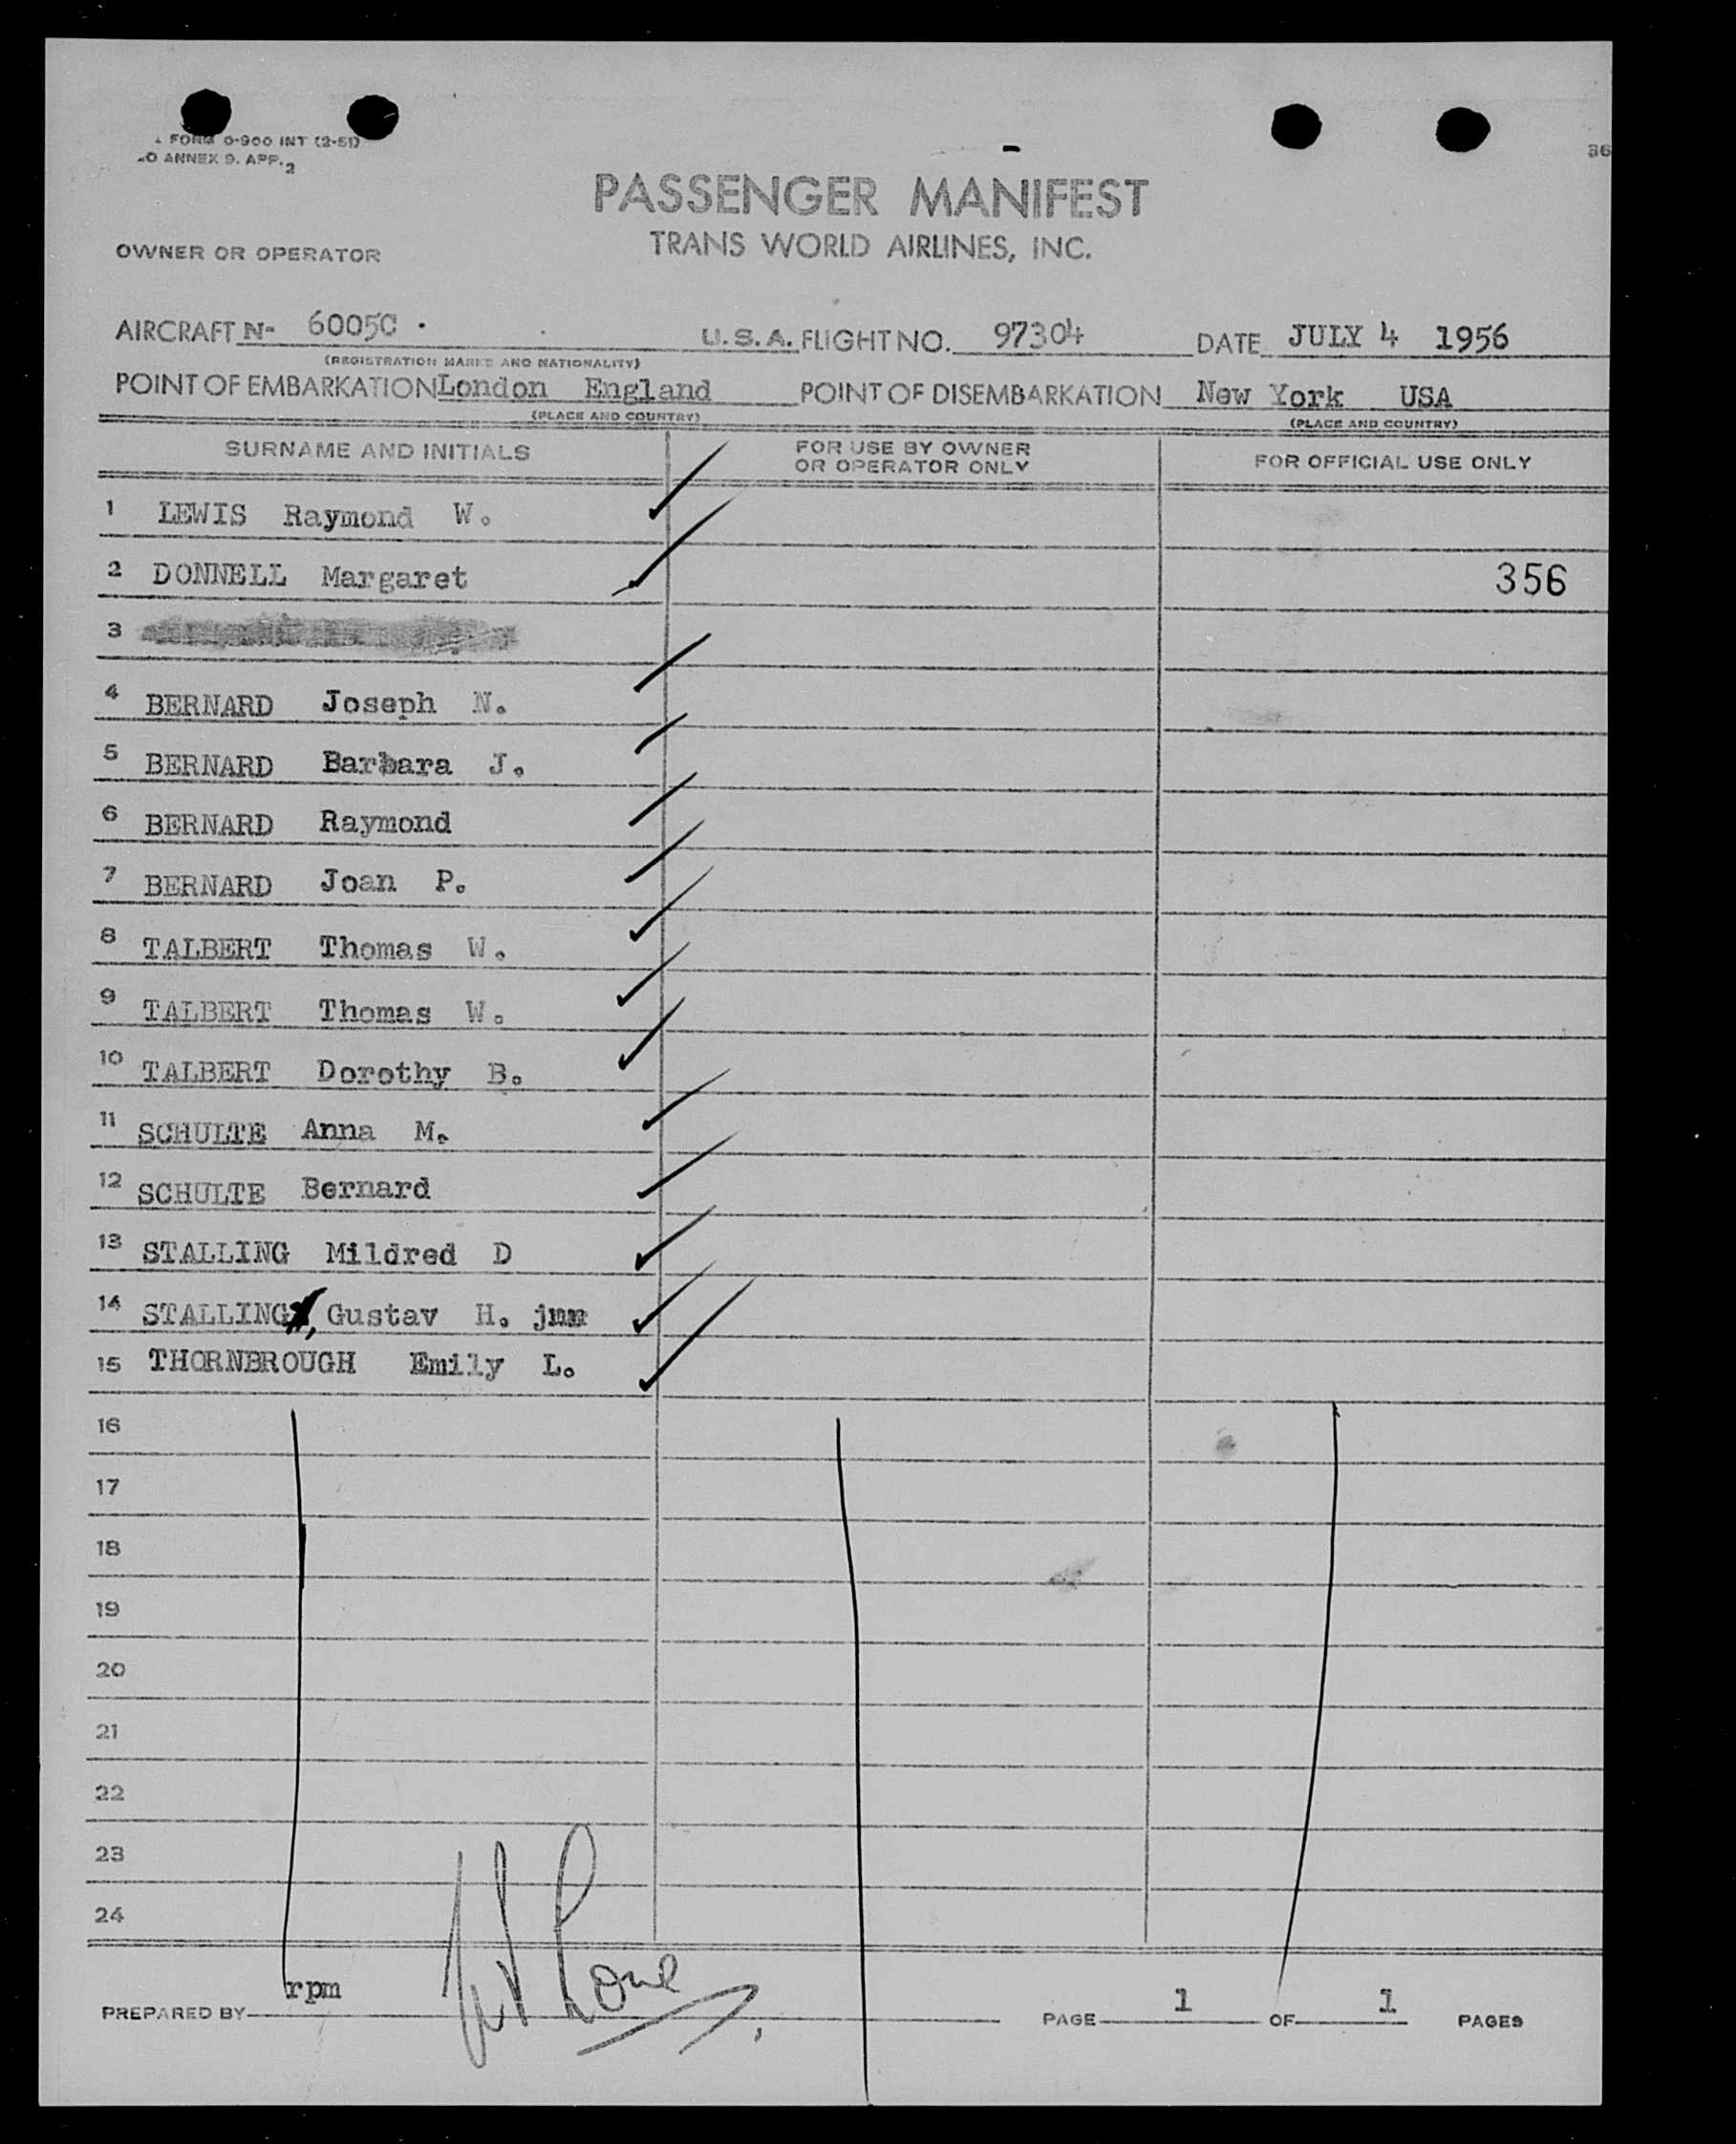 FORM 0-900 INT (2-51)
O ANNEX 9. APP. 2
36
PASSENGER MANIFEST
OWNER OR OPERATOR
TRANS WORLD AIRLINES, INC.
AIRCRAFT N- 6005C . U.S.A. FLIGHT NO. 97304 DATE JULY 4 1956
(REGISTRATION MARKS AND NATIONALITY)
POINT OF EMBARKATION London England POINT OF DISEMBARKATION New York USA
(PLACE AND COUNTRY) (PLACE AND COUNTRY)
SURNAME AND INITIALS FOR USE BY OWNER OR OPERATOR ONLY FOR OFFICIAL USE ONLY
1 LEWIS Raymond W.
2 DONNELL Margaret 356
3
4 BERNARD Joseph N.
5 BERNARD Barbara J.
6 BERNARD Raymond
7 BERNARD Joan P.
8 TALBERT Thomas W.
9 TALBERT Thomas W.
10 TALBERT Dorothy B.
11 SCHULTE Anna M.
12 SCHULTE Bernard
13 STALLING Mildred D
14 STALLING, Gustav H.
15 THORNBROUGH Emily L.
16
17
18
19
20
21
22
23
24
PREPARED BY rpm PAGE 1 OF 1 PAGES